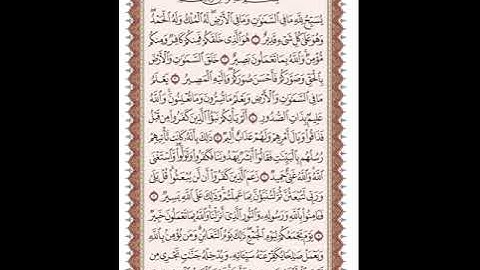 يُسَبِّحُ لِلَّهِ مَا فِي السَّمَوَاتِ وَمَا فِي الْأَرْضِ لَهُ الْمُلْكُ وَلَهُ الْحَمْدُ
وَهُوَ عَلَى كُلِّ شَيْءٍ قَدِيرٌ ۝ هُوَ الَّذِي خَلَقَكُمْ فَمِنكُمْ كَافِرٌ وَمِنكُم
مُّؤْمِنٌ وَاللَّهُ بِمَا تَعْمَلُونَ بَصِيرٌ ۝ خَلَقَ السَّمَوَاتِ وَالْأَرْضَ
بِالْحَقِّ وَصَوَّرَكُمْ فَأَحْسَنَ صُوَرَكُمْ وَإِلَيْهِ الْمَصِيرُ ۝ يَعْلَمُ
مَا فِي السَّمَوَاتِ وَالْأَرْضِ وَيَعْلَمُ مَا تُسِرُّونَ وَمَا تُعْلِنُونَ وَاللَّهُ
عَلِيمٌ بِذَاتِ الصُّدُورِ ۝ أَلَمْ يَأْتِكُمْ نَبَؤُا الَّذِينَ كَفَرُوا مِن قَبْلُ
فَذَاقُوا وَبَالَ أَمْرِهِمْ وَلَهُمْ عَذَابٌ أَلِيمٌ ۝ ذَلِكَ بِأَنَّهُ كَانَت تَّأْتِيهِمْ
رُسُلُهُم بِالْبَيِّنَاتِ فَقَالُوا أَبَشَرٌ يَهْدُونَنَا فَكَفَرُوا وَتَوَلَّوا وَّاسْتَغْنَى
اللَّهُ وَاللَّهُ غَنِيٌّ حَمِيدٌ ۝ زَعَمَ الَّذِينَ كَفَرُوا أَن لَّن يُبْعَثُوا قُلْ بَلَى
وَرَبِّي لَتُبْعَثُنَّ ثُمَّ لَتُنَبَّؤُنَّ بِمَا عَمِلْتُمْ وَذَلِكَ عَلَى اللَّهِ يَسِيرٌ ۝
فَآمِنُوا بِاللَّهِ وَرَسُولِهِ وَالنُّورِ الَّذِي أَنزَلْنَا وَاللَّهُ بِمَا تَعْمَلُونَ خَبِيرٌ
۝ يَوْمَ يَجْمَعُكُمْ لِيَوْمِ الْجَمْعِ ذَلِكَ يَوْمُ التَّغَابُنِ وَمَن يُؤْمِن بِاللَّهِ
وَيَعْمَلْ صَالِحًا يُكَفِّرْ عَنْهُ سَيِّئَاتِهِ وَيُدْخِلْهُ جَنَّاتٍ تَجْرِي مِن